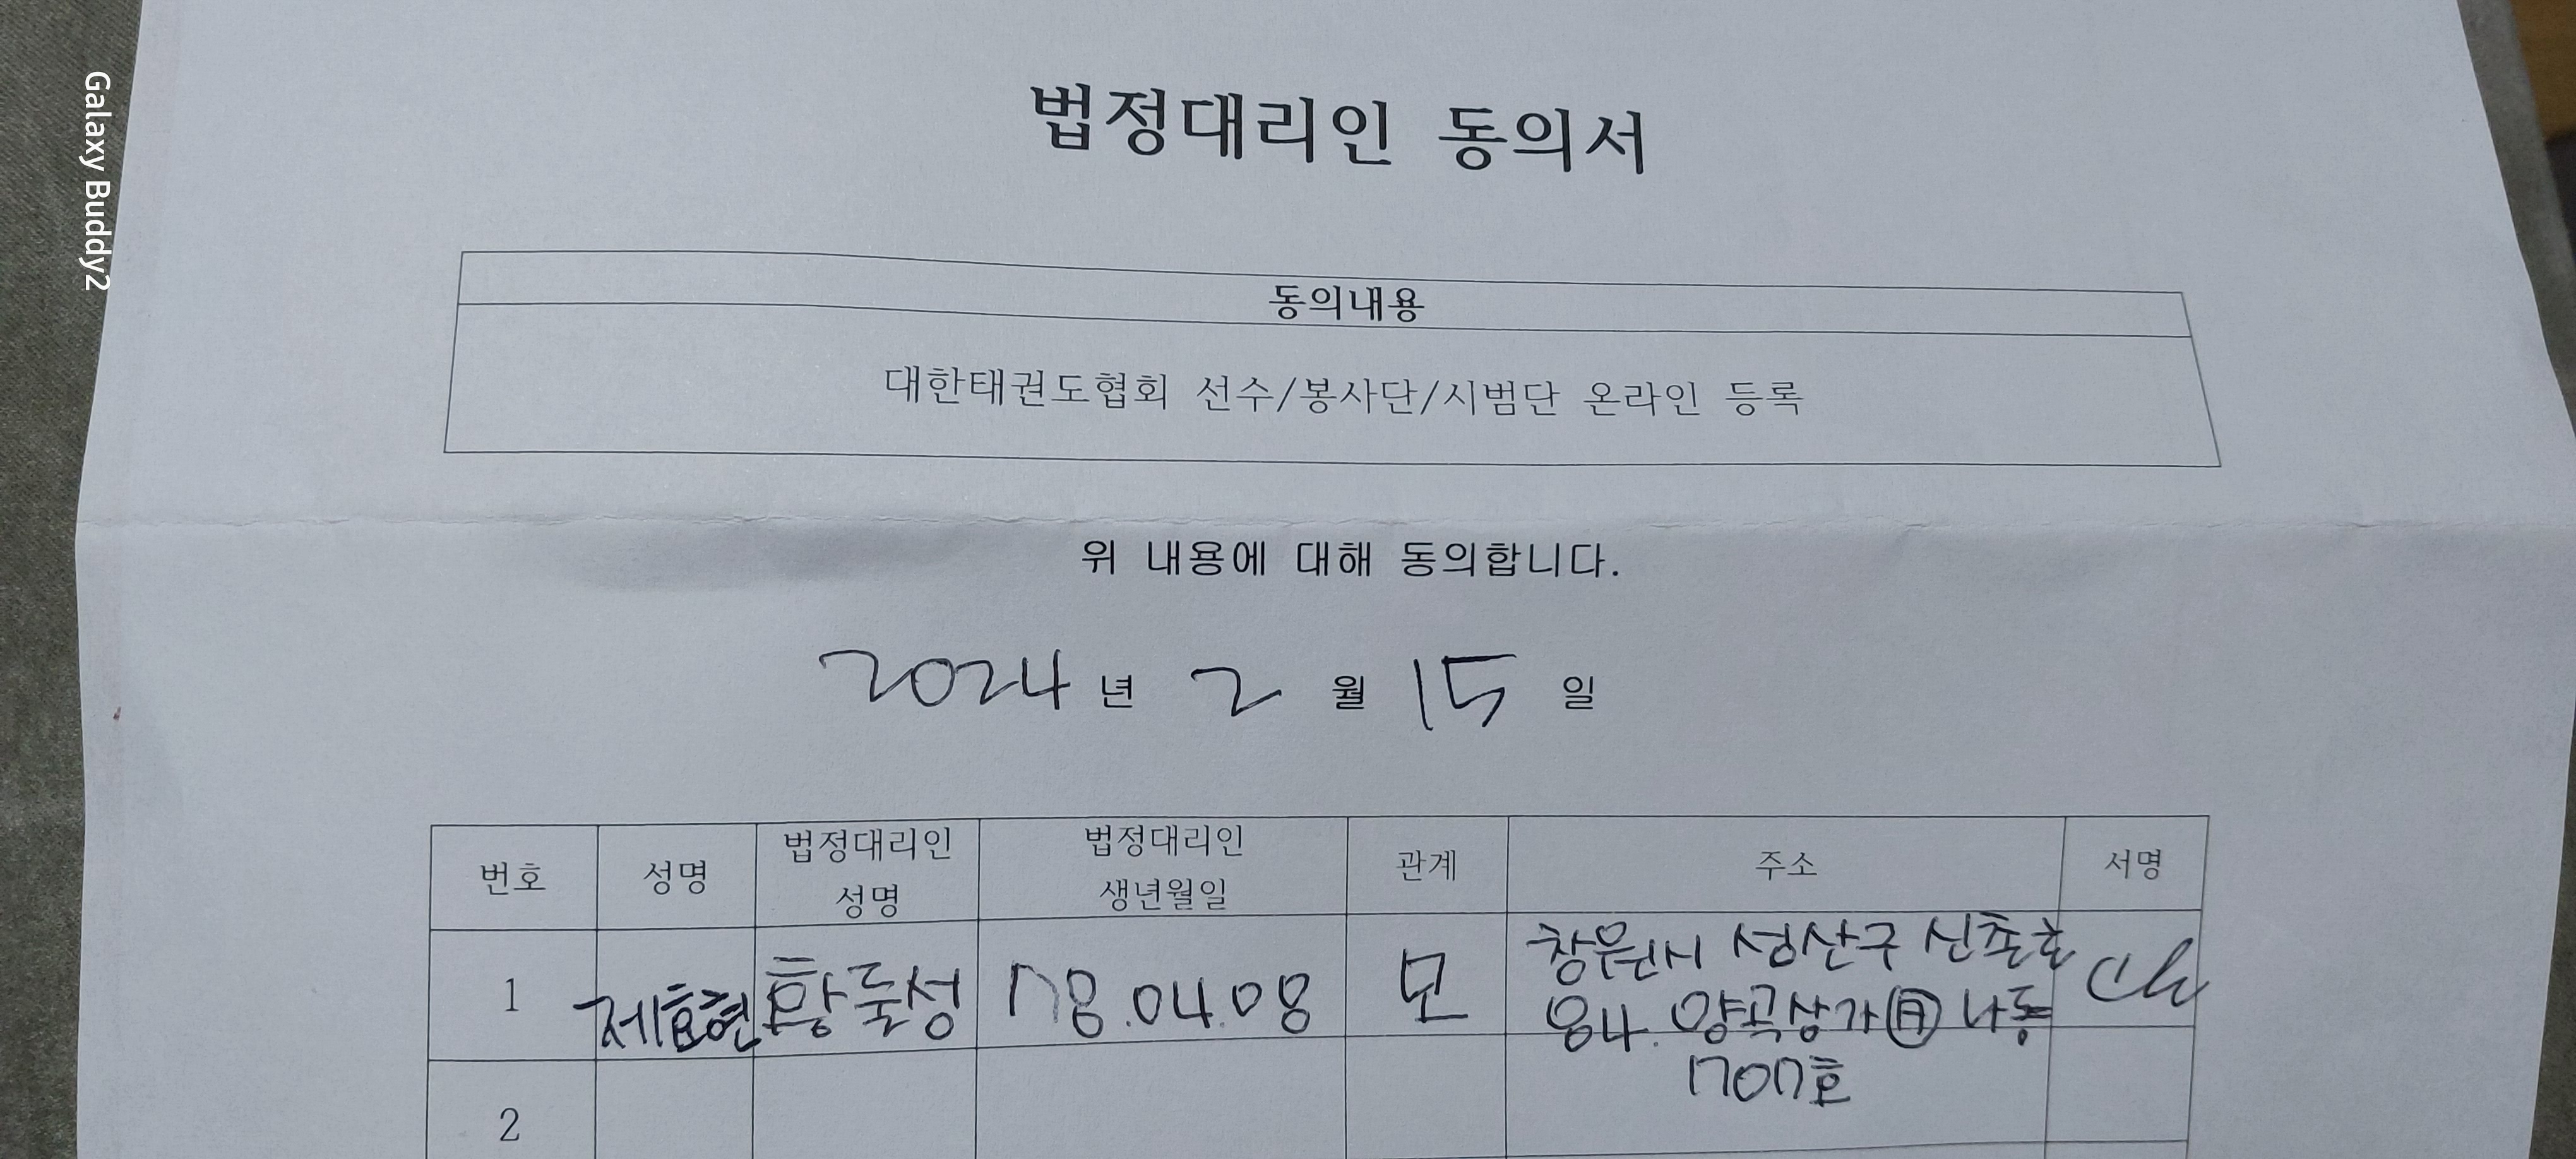 법정대리인 동의서
Galaxy Buddy2
동의내용
대한태권도협회 선수/봉사단/시범단 온라인 등록
위 내용에 대해 동의합니다.
2024 년 2 월 15 일
번호 성명 법정대리인 성명 법정대리인 생년월일 관계 주소 서명
1 제효현 황둘성 78.04.08 모 창원시 성산구 신촌로
84. 양곡상가 나동
707호
2